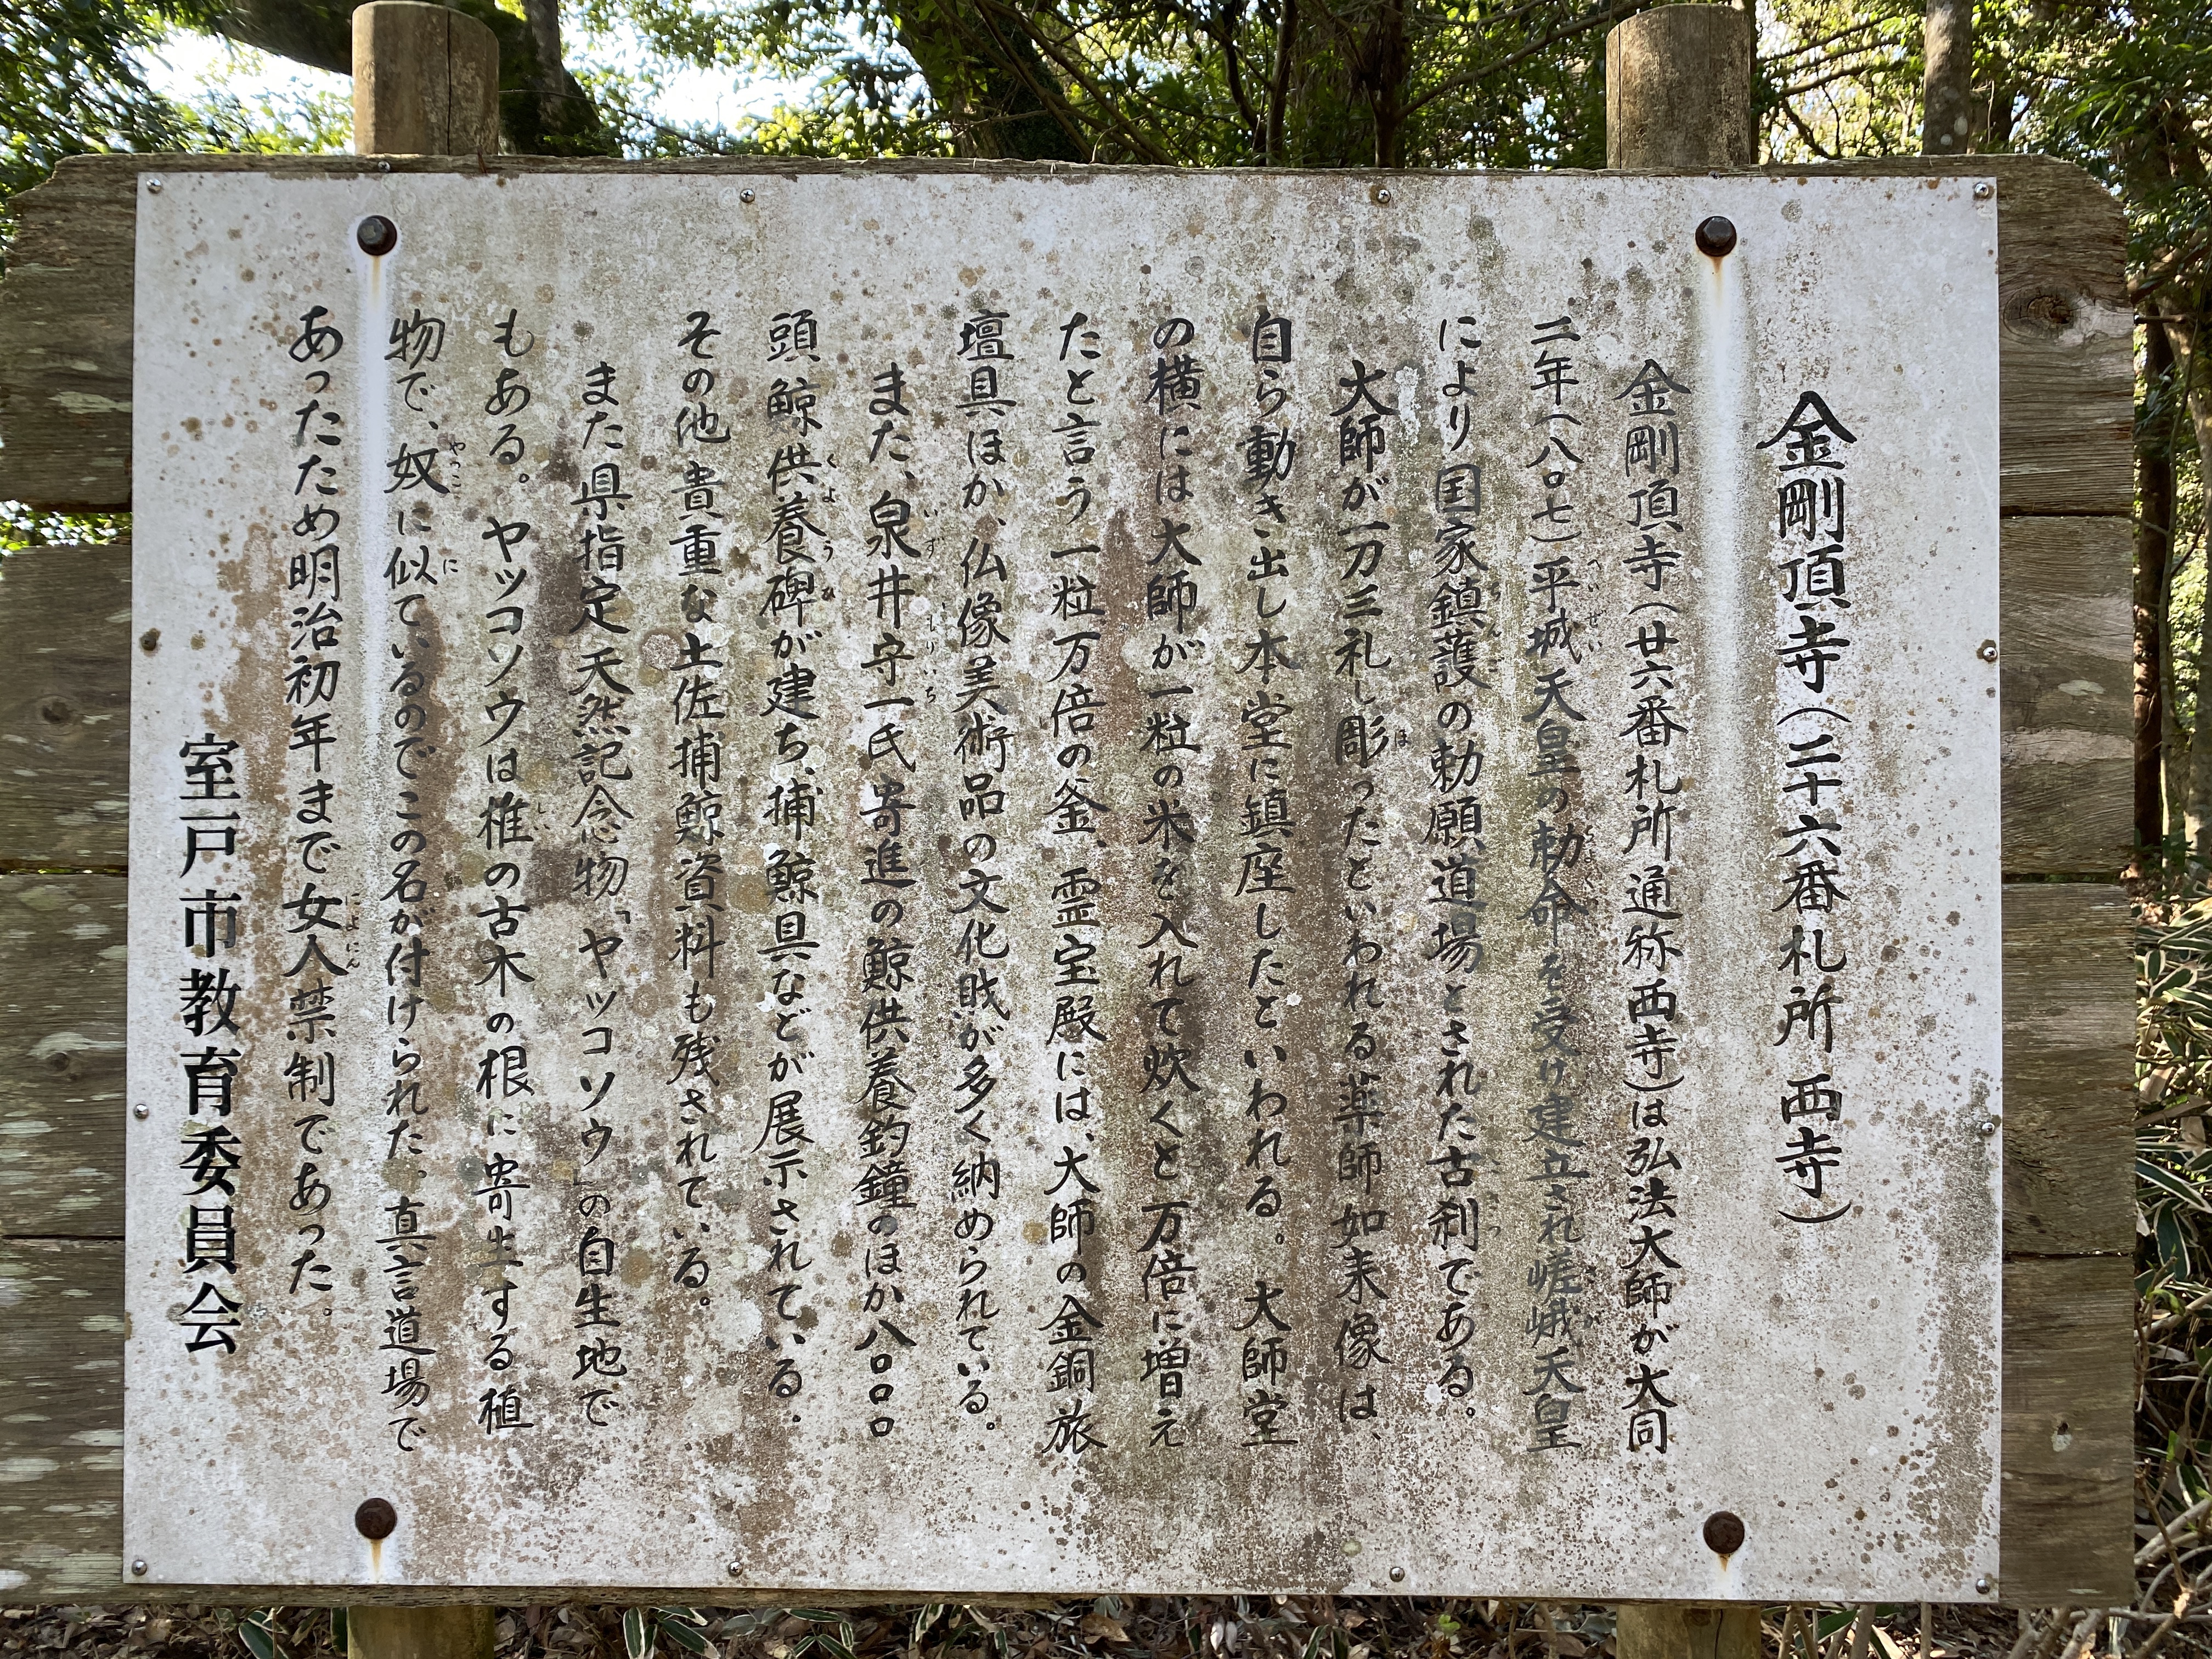 金剛頂寺（二十六番札所 西寺）
金剛頂寺（廿六番札所通称西寺）は弘法大師が大同
二年（八〇七）平城天皇の勅命を受け建立され嵯峨天皇
により国家鎮護の勅願道場とされた古刹である。
大師が一刀三礼し彫ったといわれる薬師如来像は、
自ら動き出し本堂に鎮座したといわれる。大師堂
の横には大師が一粒の米を入れて炊くと万倍に増え
たと言う一粒万倍の釜、霊宝殿には、大師の金銅旅
壇具ほか、仏像美術品の文化財が多く納められている。
また、泉井守一氏寄進の鯨供養釣鐘のほか八〇〇〇
頭鯨供養碑が建ち、捕鯨具などが展示されている。
その他貴重な土佐捕鯨資料も残されている。
また県指定天然記念物「ヤッコソウ」の自生地で
もある。ヤッコソウは椎の古木の根に寄生する植
物で、奴に似ているのでこの名が付けられた。真言道場で
あったため明治初年まで女人禁制であった。
室戸市教育委員会